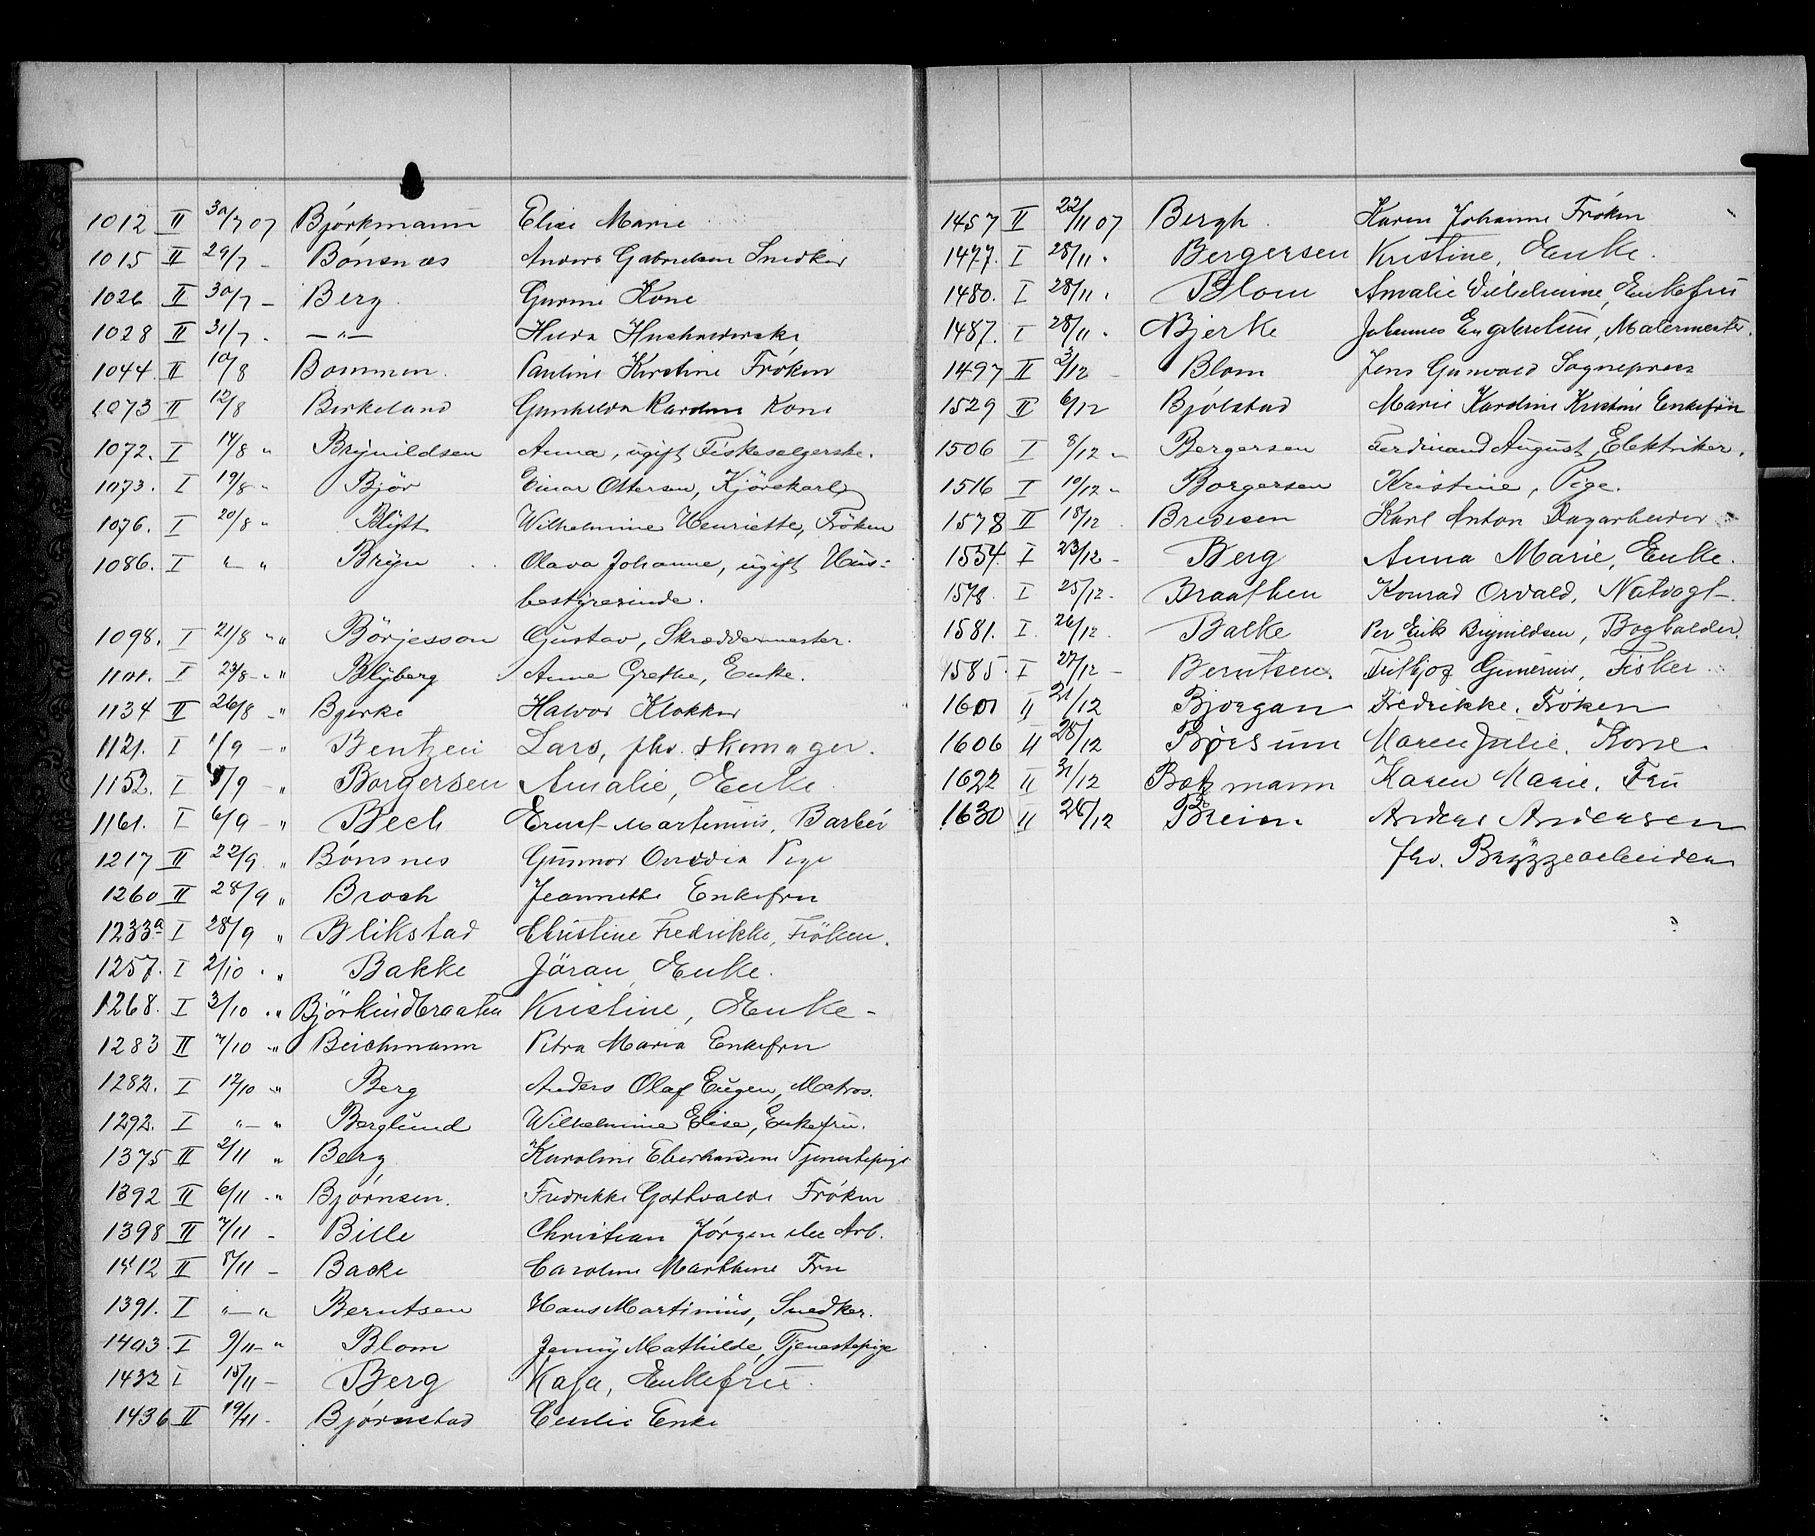 1012 II 30/7 07 Björkmann Elise Marie
1015 II 29/7 - Bönsnæs Anders Gabrielsen Snedker
1026 II 30/7 - Berg. Gurine Kone
1028 II 31/7 - —"— Hulda Husholderske
1044 II 10/8 Bommen. Pauline Kirstine Frøken
1073 II 12/8 Birkeland Gunhilda Karoline Kone
1072. I 14/8 " Brynildsen Anna, ugift Fiskesælgerske.
1073. I 19/8 " Björ Einar Ottersen, Kjörekarl
1076. I 20/8 " Blyft Wilhelmine Henriette, Fröken
1086. I "—" Bryn Olava Johanne, ugift Hus=
bestyrerinde.
1098. I 21/8 - " Börjesson Gustav, Skræddermester.
1101. I 23/8 - " Blyberg Anne Grethe, Enke.
1134 II 26/8 - " Bjerke Halvor Klokker
1121. I 1/9 - " Bentzen Lars, fhv. Skomager.
1152. I 5/9 - " Borgersen Amalie, Enke.
1161. I 6/9 - " Bech Ernst Martinius, Barbér
1217 II 22/9 " Bönsnes Gunnor Ovidia Pige
1260 II 28/9 " Broch Jeannette Enkefru
1233a I 28/9 " Blikstad Christine Fredrikke, Fröken.
1257. I 2/10 . " Bakke Jöran, Enke.
1268. I 3/10 . " Björkindbraaten Kristine, Enke -
1283 II 7/10 - " Beichmann Petra Maria Enkefru
1282. I 12/10 " Berg Anders Olaf Eugen, Matros.
1292. I "—" Berglund Wilhelmine Elise, Enkefru.
1375 II 2/11 " Berg Karoline Eberhardine Tjenestepige
1392 II 6/11 . " Björnsen. Fredrikke Gothvalda Frøken
1398 II 7/11 - Bille Christian Jörgen Arb.
1412 II 8/11 - Backe Caroline Marthine Fru
1391. I "—" Berntsen Hans Martinius, Snedker.
1403. I 9/11 - " Blom Jenny Mathilde, Tjenestepige
1432 I 15/11 - Berg Kaja, Enkefru.
1436 II 19/11 - Björnstad Cecilie Enke
1457 II 22/11 07 Bergh. Karen Johanne Frøken
1477. I 28/11 . Bergersen Kristine, Enke.
1480. I 28/11 . Blom Amalie Vilhelmine, Enkefru
1487. I 28/11 . Bjerke Johannes Engebretsen, Malermester.
1497 II 3/12 - Blom Jens Gunvald Sogneprest
1529 II 6/12 Bjølstad Marie Karoline Kristine Enkefru
1506 I 8/12 - Bergersen Ferdinand August, Elektriker.
1516 I 10/12 " Borgersen Kristine, Pige.
1578 II 18/12 Bredesen Karl Anton Dagarbeider
1554. I 23/12 - Berg Anna Marie, Enke.
1578. I 25/12 - Braathen Konrad Orvald, Natvagt-
1581. I. 26/12. Balke Per Erik Brynildsen, Bogholder.
1585. I 27/12 - Berntsen. Fritjof Gunerius, Fisker.
1601 II 21/12 Bjorgan Fredrikke, Frøken
1606 II 28/12 Børsum Maren Julie, Kone.
1622 II 31/12 Botzmann Karen Marie, Fru
1630 II 28/12 Breim. Anders Andersen
fhv. Bryggearbeider